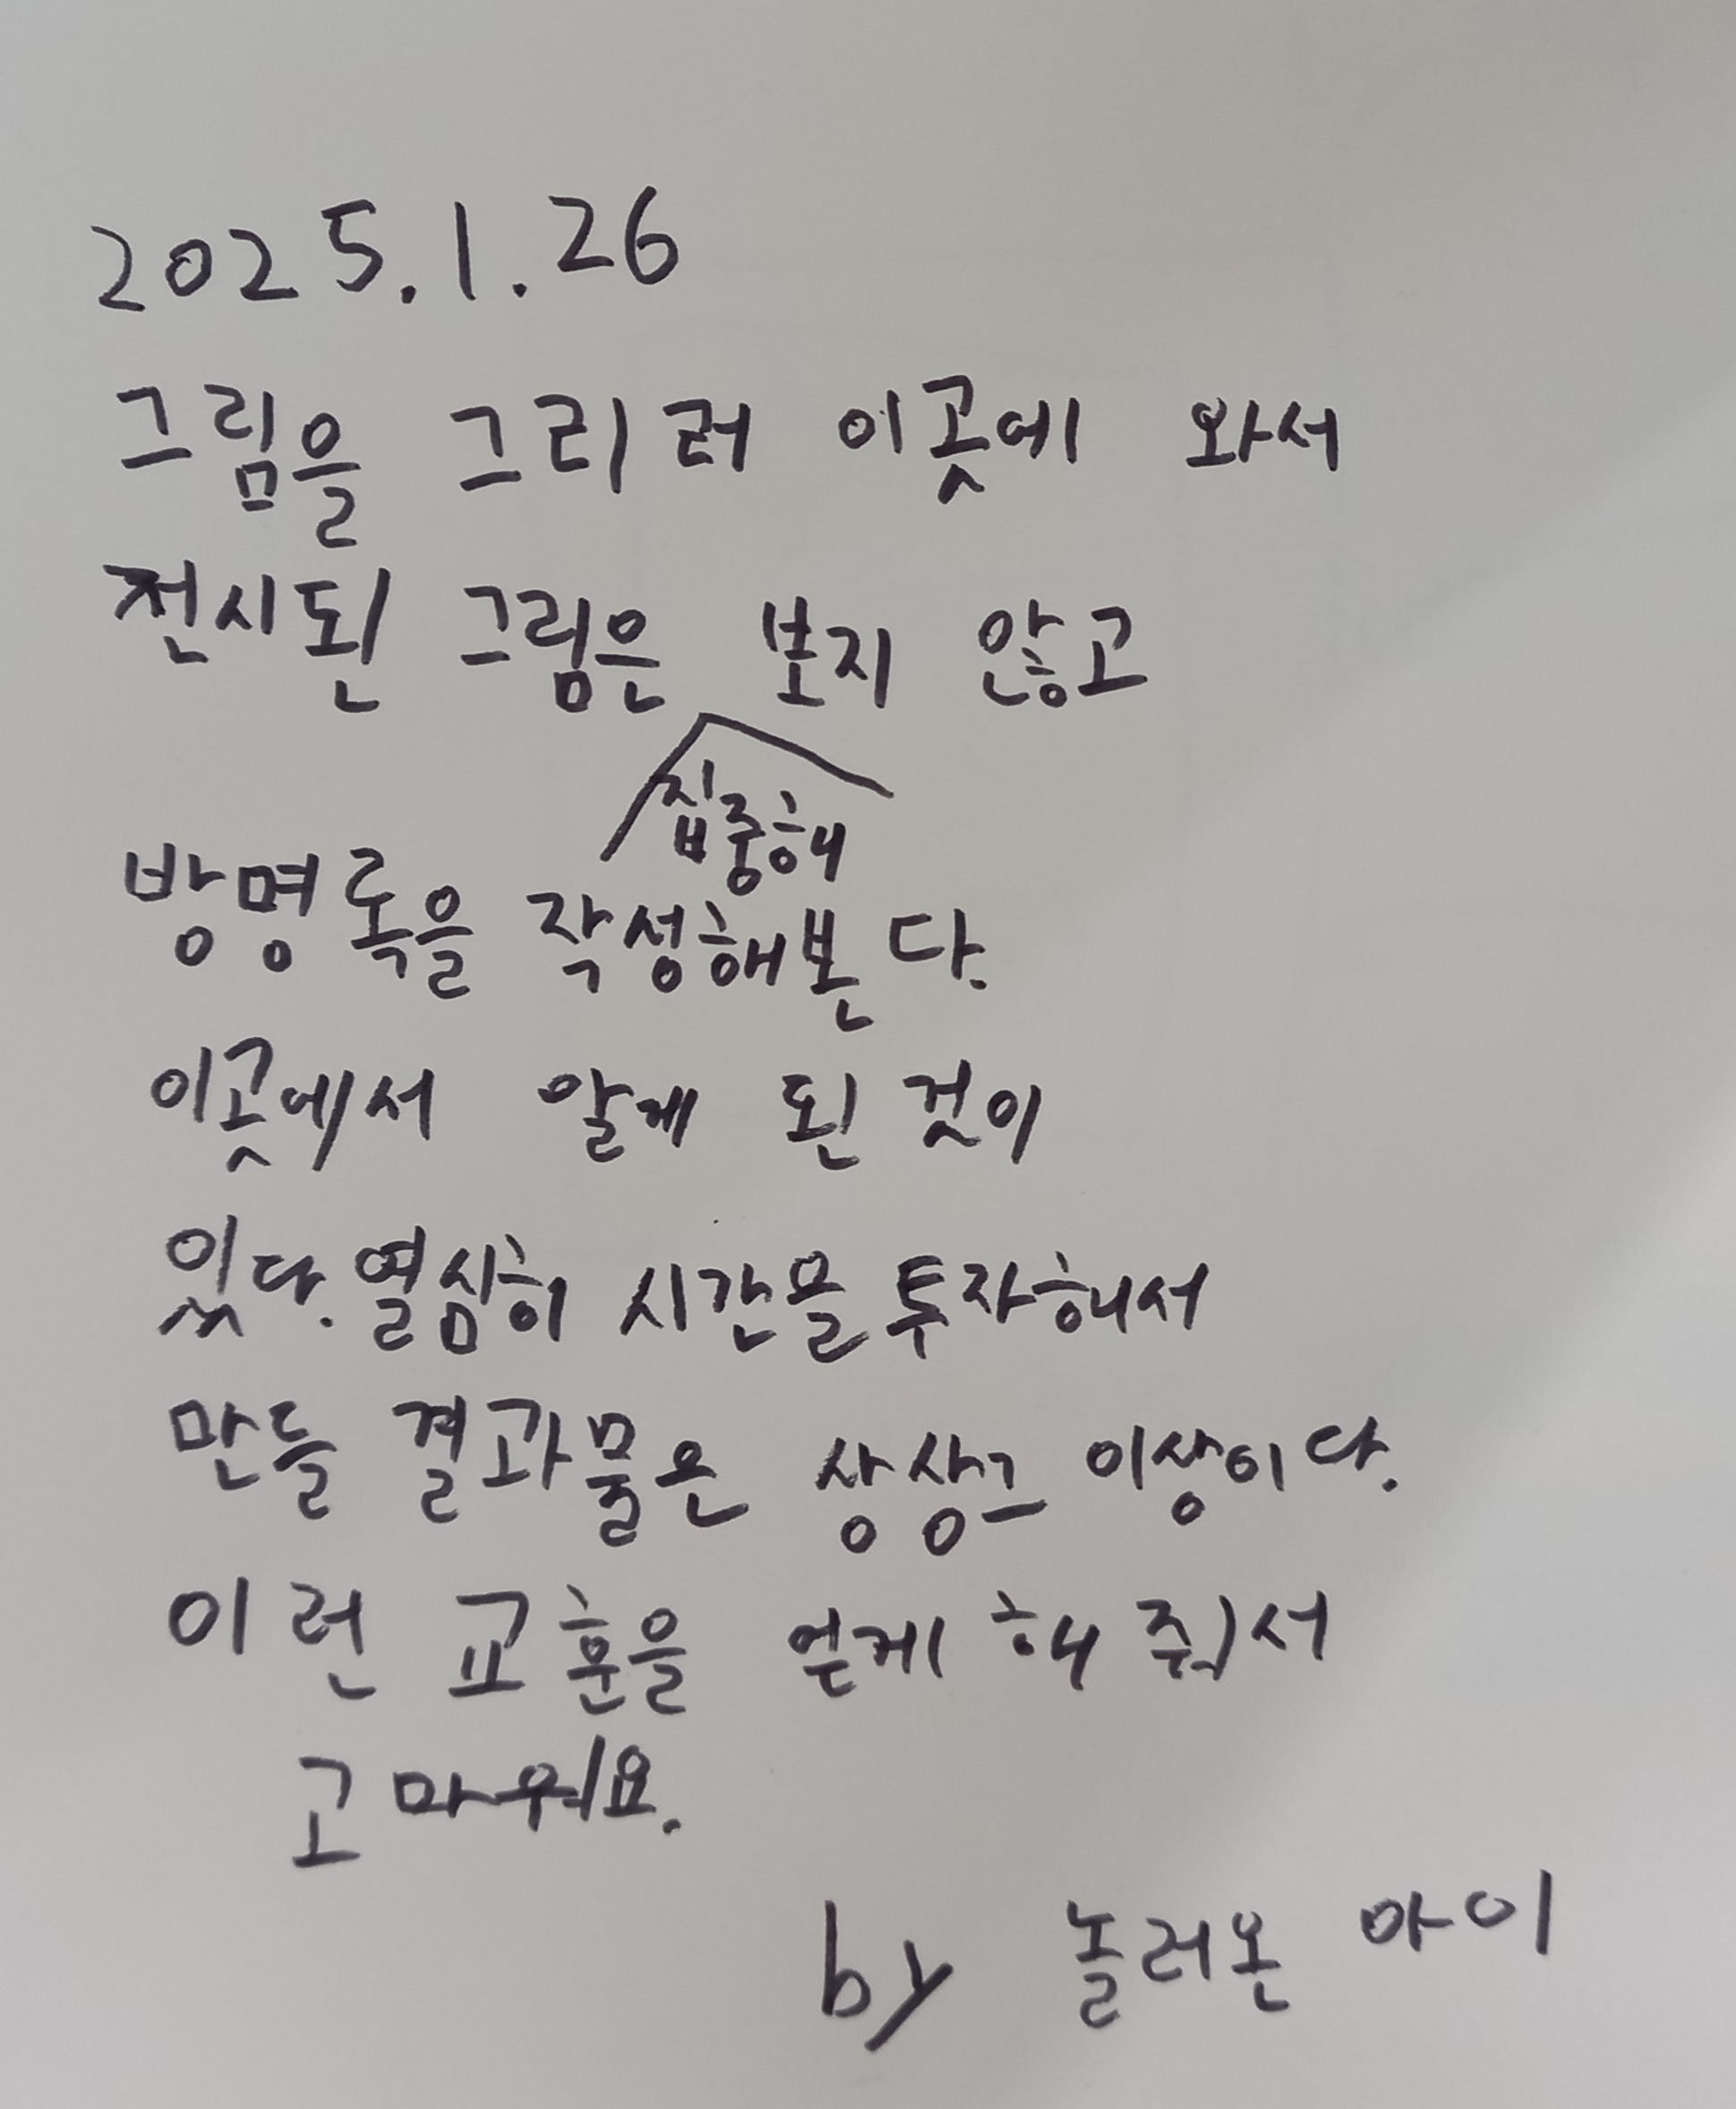 2025.1.26
그림을 그리러 이곳에 와서
전시된 그림은 보지 않고
집중해
방명록을 작성해본다.
이곳에서 알게 된 것이
있다. 열심히 시간을 투자해서
만들 결과물은 상상그 이상이다.
이런 교훈을 얻게 해 줘서
고마워요.
by 놀러온 아이